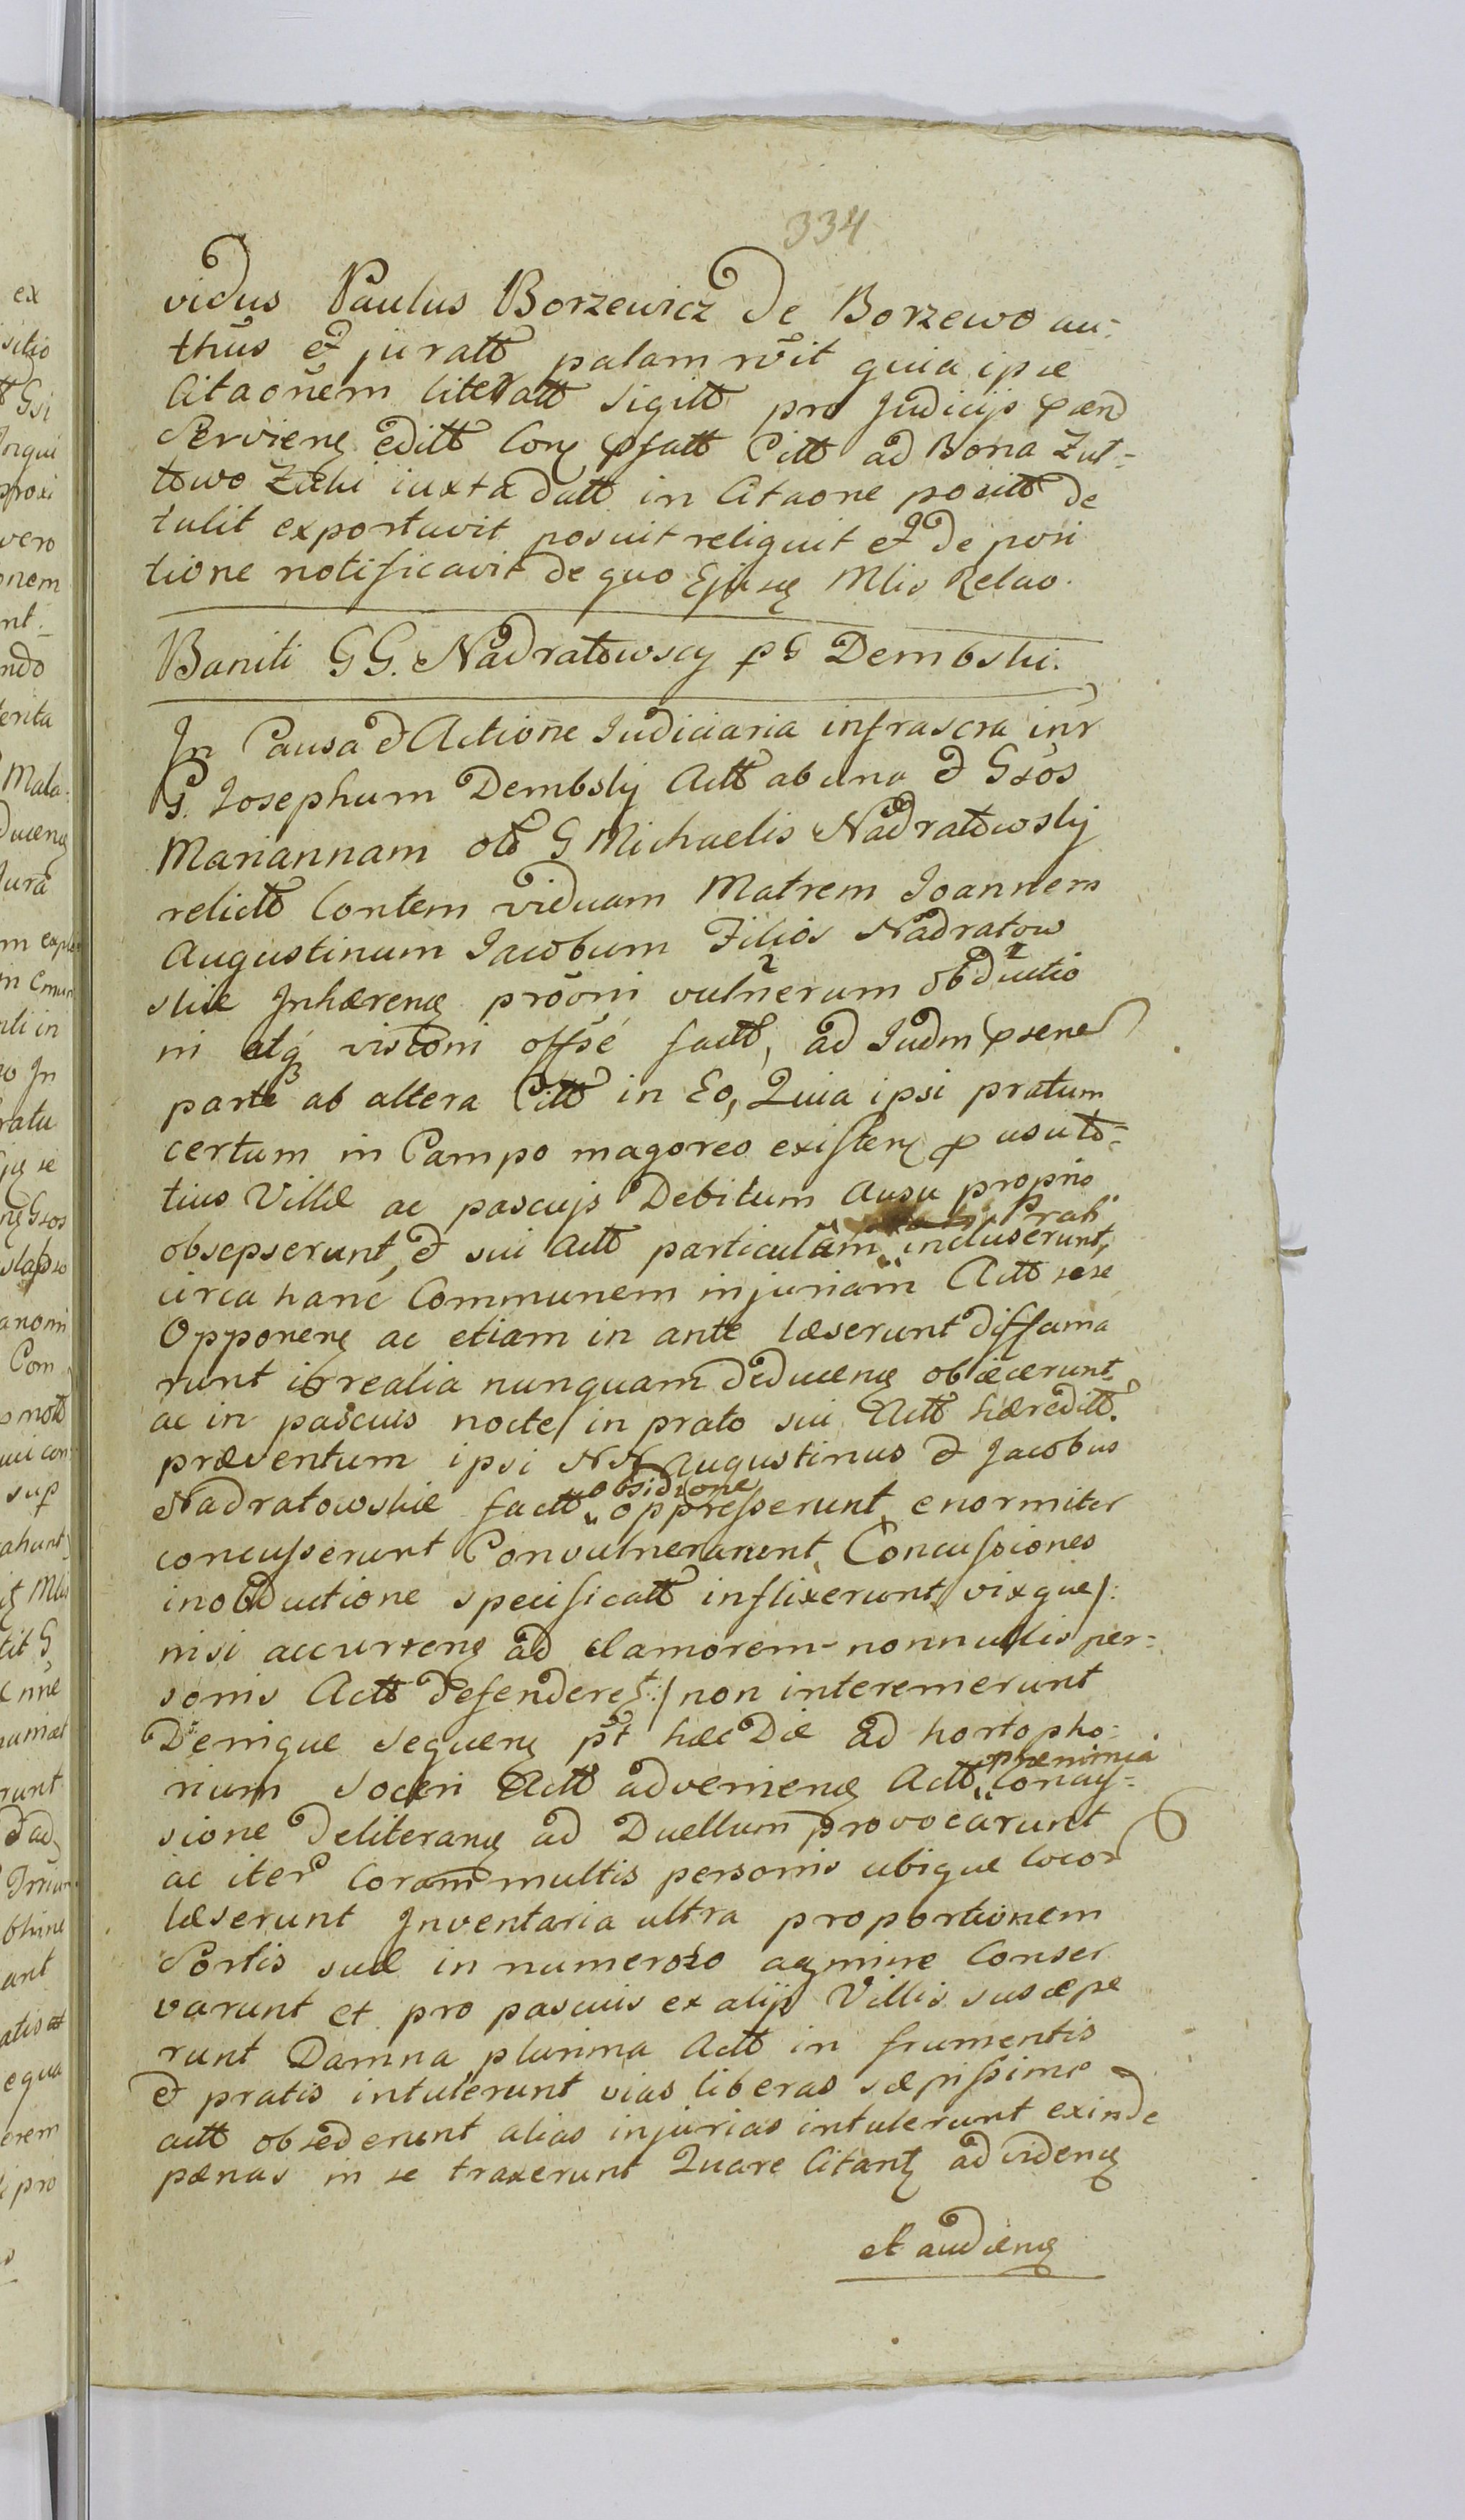 334
vidus Paulus Borzewicz de Borzewo au-
thūs et juratt palam rōit quia ipse
Citaōnem literatt Sigitt pro Judicijs
Servien editt Con Citt ad Bona Zut-
towo iuxta datt in Citaone positt de
tulit exportavit posuit reliquit et de posi
tione notificavit de quo Ejusq Mlis Relao.
Baniti GG. Nadratowscy p G Dembski.
In Causa et Actione Judiciaria infrascra intr
G. Josephum Dembskij Actt ab una et Gsos
Mariannam olt G Michaelis Nadratowskij
relictt Contem viduam Matrem Joannem
Augustinum Jacobum Filios Nadratow
skie Inhæren prōōni vulnerum obductio
ni atq visioni offsē factt, ad Judm psen
parte ab altera Citt in Eo, Quia ipsi pratum
certum in Campo magoreo existen p usu to-
tius Villæ ac pascujs Debitum Ausu proprio
obsepserunt, et sui Actt particulam " Prati incluserunt,
circa hanc Communem injuriam Actt sese
Opponen ac etiam in ante læserunt diffama
runt irrealia nunquam deducen obiecerunt
ac in pascuis nocte in prato sui Actt hæreditt.
præventum ipsi NN Augustinus et Jacobus
Nadratowskie factt " obsidione oppresserunt enormiter
concusserunt Convulnerarunt, Concussiones
in obductione specificatt inflixerunt vixque /:
nisi accurren ad clamorem nonnullis per-
sonis Actt defenderet :/ non interemerunt
Denique Sequen pt hæc Die ad hortopho-
rium Soceri Actt advenien Actt " prænimia Concus-
sione deliteran ad Duellum provocarunt
ac iter Coram multis personis ubique locor
læserunt Inventaria ultra proportionem
Sortis suæ in numeroso agmine Conser
varunt et pro pascuis ex alijs Villis suscepe
runt Damna plurima Actt in frumentis
et pratis intulerunt vias liberas sæpissime
actt obsederunt alias injurias intulerunt exinde
pænas in se traxerunt Quare Citant ad viden
et audien